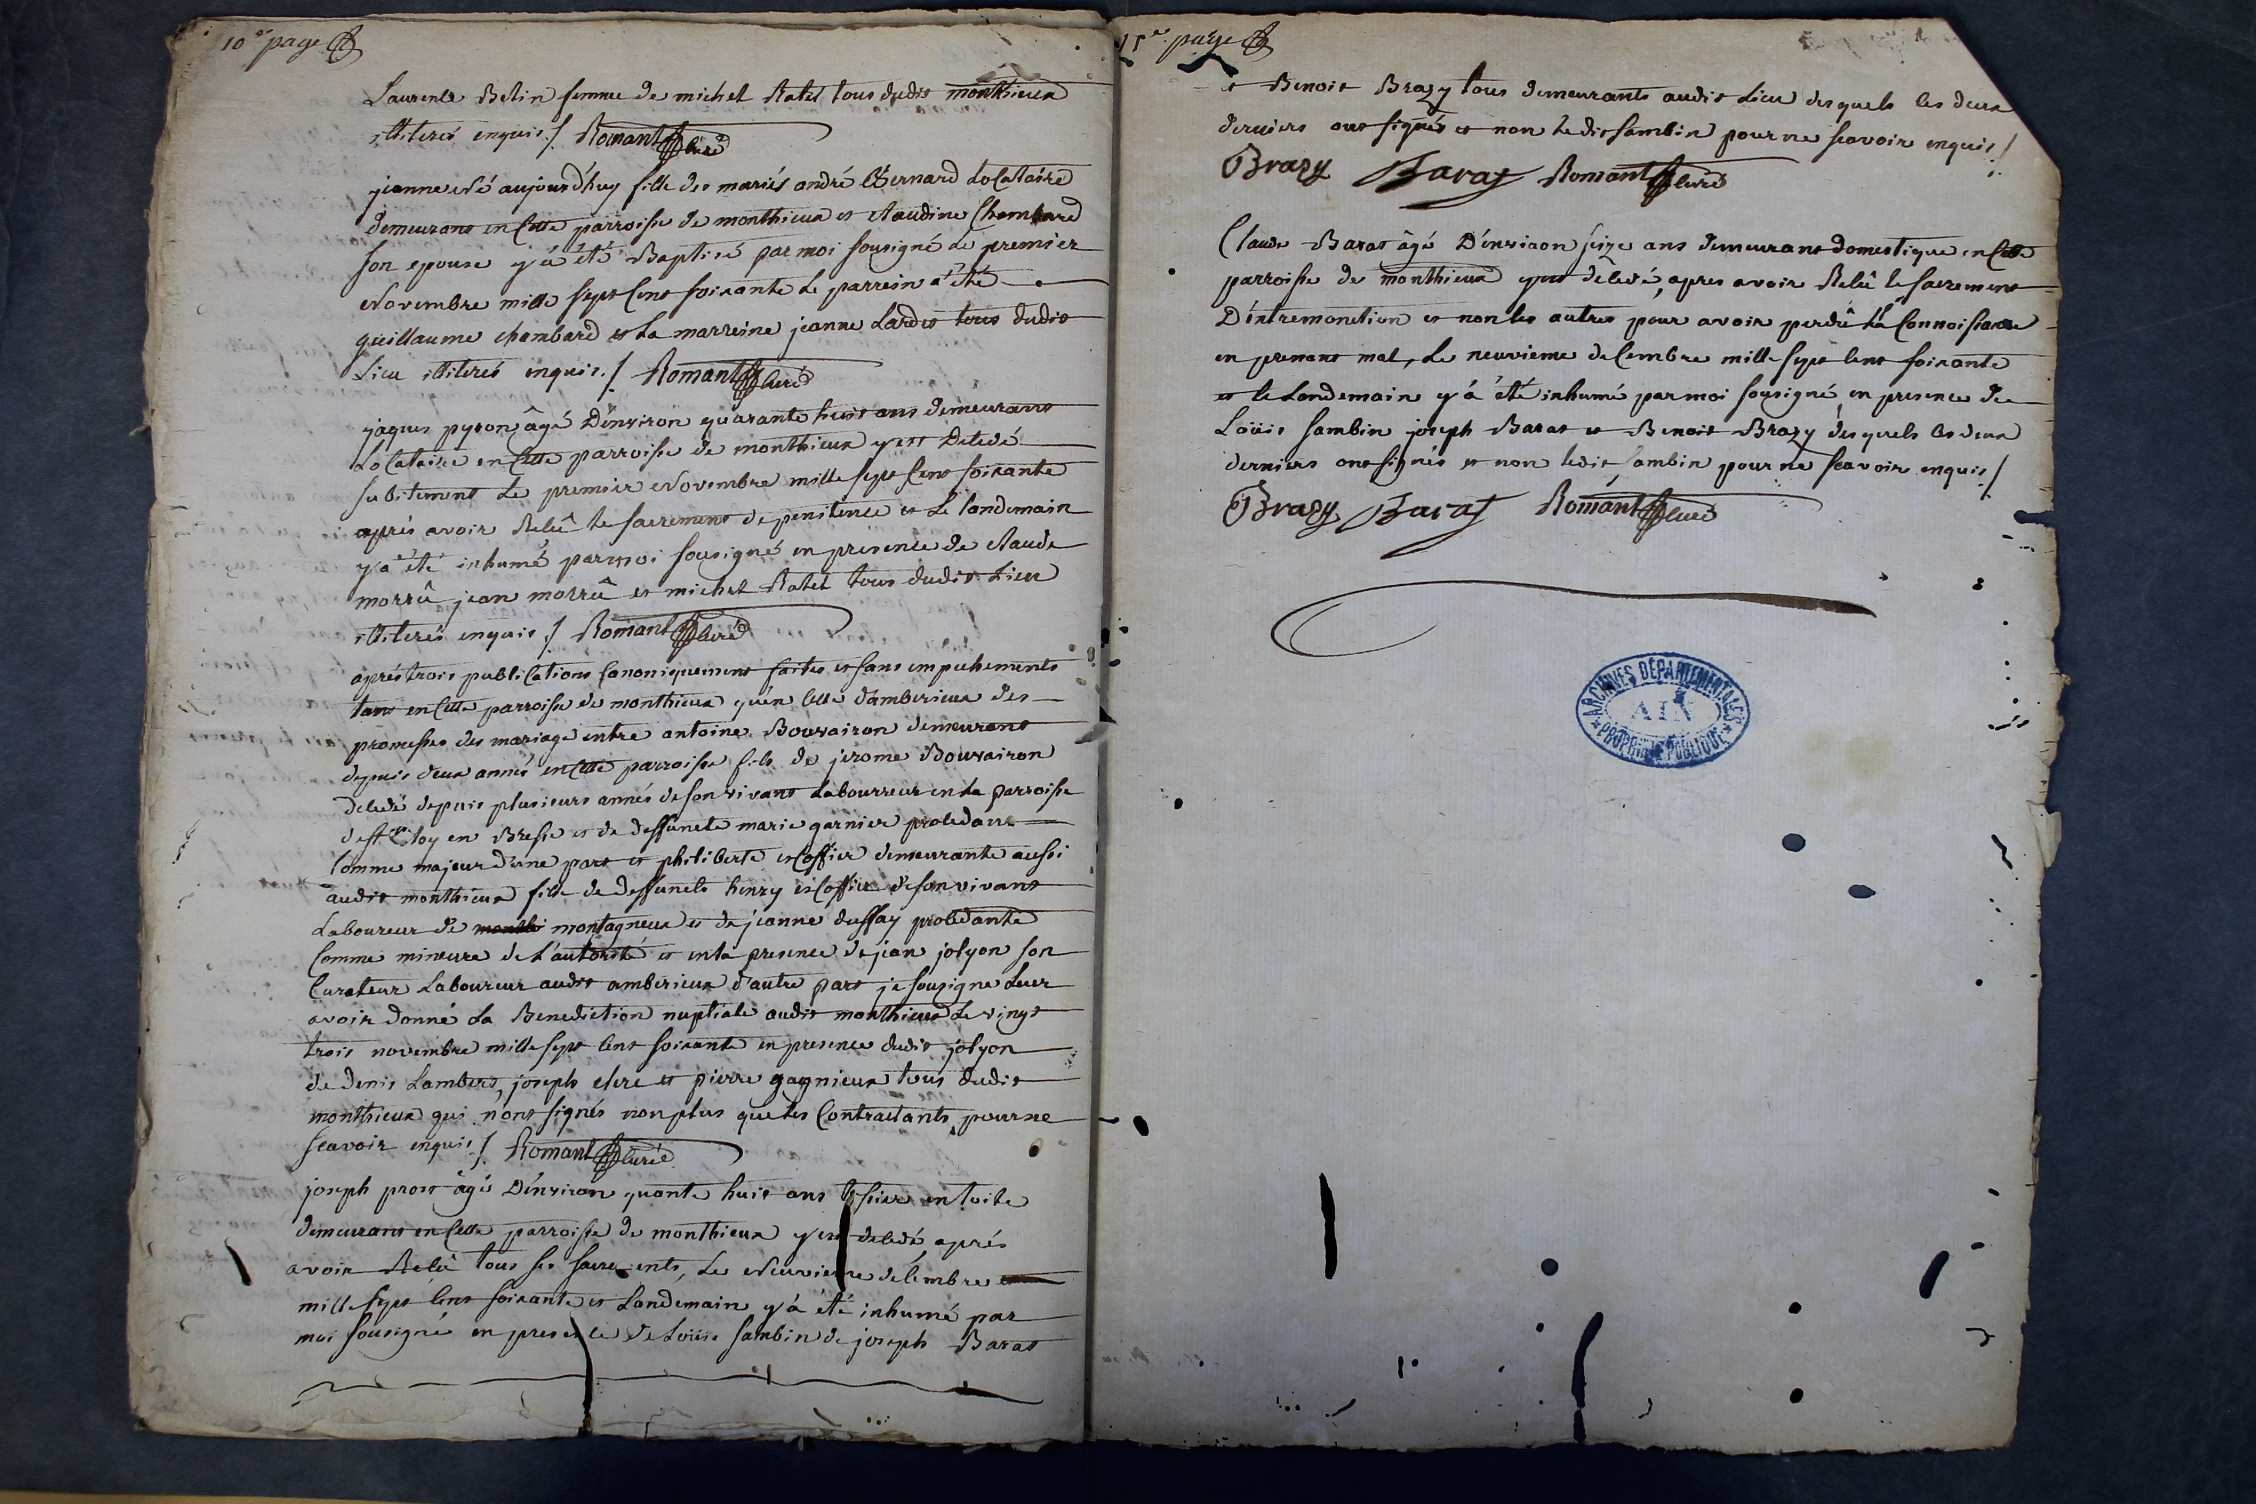 10e page
Laurence Belin femme de michel Ratel tous dudit monthieux
illiterés enquis ./. Romant Curé
jeanne Né aujourd'huy fille des mariés andré Bernard Locataire
demeurant en Cette parroisse de monthieux et Claudine Chambard
son epouse y'á été Baptisé par moi sousigné Le premier
Novembre mille sept Cent soixante Le parrein a été
guillaume chambard et La marreine jeanne Lardet tous dudit
Lieu illiterés enquis ./. Romant Curé
jâques pyron âgé D'environ quarante huit ans demeurant
Locataire en Cette parroisse de monthieux y est Décédé
subitement Le premier Novembre mille sept Cent soixante
aprés avoir Reçû le sacrement de penitence et Le landemain
y'a été inhumé par moi sousigné en presence de Claude
morrû jean morrû et michel Ratel tous dudit Lieu
illiterés enquis ./. Romant Curé
aprés trois publications Canoniquement faites et sans empechements
tant en Cette parroisse de monthieux qu'en Celle d'amberieux des
promesses de mariage entre antoine Bouvairon demeurant
depuis deux annés en Cette parroisse fils de jerome Bouvairon
décédé depuis plusieurs annés de son vivant Labourreur en La parroisse
de st Eloy en Bresse et de deffuncte marie garnier procedant
Comme majeur d'une part et philiberte escoffier demeurante aussi
audit monthieux fille de deffuncts henry escoffier de son vivant
Laboureur de montagneux et de jeanne dussay procedante
Comme mineure de L'autorité et en la presence de jean jolyon son
Curateur Laboureur audit amberieux d'autre part je sousigne Curé
avoir donné La Benediction nuptiale audit monthieux Le vingt
trois novembre mille sept Cent soixante en presence dudit jolyon
de denis Lambert, joseph clerc et pierre gagnieux tous dudit
monthieux qui n'ont signés non plus que les Contractants pour ne
sçavoir enquis ./. Romant Curé
joseph prost âgé D'environ quante huit ans tissier en toile
demeurant en Cette parroisse de monthieux y est décédé, aprés
avoir Reçû tous ses sacrements, Le Neuvieme décembre
mille sept Cent soixante et Landemain y'á été inhumé par
moi sousigné en presence de Loüis sambin de joseph Barat
11e page
et Benoit Brazy tous demeurants audit Lieu desquels les deux
derniers ont signés et non Ledit sambin pour ne sçavoir enquis ./.
Brazy Barat Romant Curé
Claude Barat âgé D'environ seize ans demeurant domestique en Cette
parroisse de monthieux y est décédé, apres avoir Reçû le sacrement
D'extremonction et non les autres pour avoir perdû La Connoissance
en prenant mal, Le neuvieme décembre mille sept Cent soixante
et le Landemain y'á été inhumé par moi sousigné en presence de
Loüis sambin joseph Barat et Benoit Brazy desquels les deux
derniers ont signés et non ledit sambin pour ne sçavoir enquis ./.
Brazy Barat Romant Curé
ARCHIVES DÉPARTEMENTALES
AIN
PROPRIÉTÉ PUBLIQUE